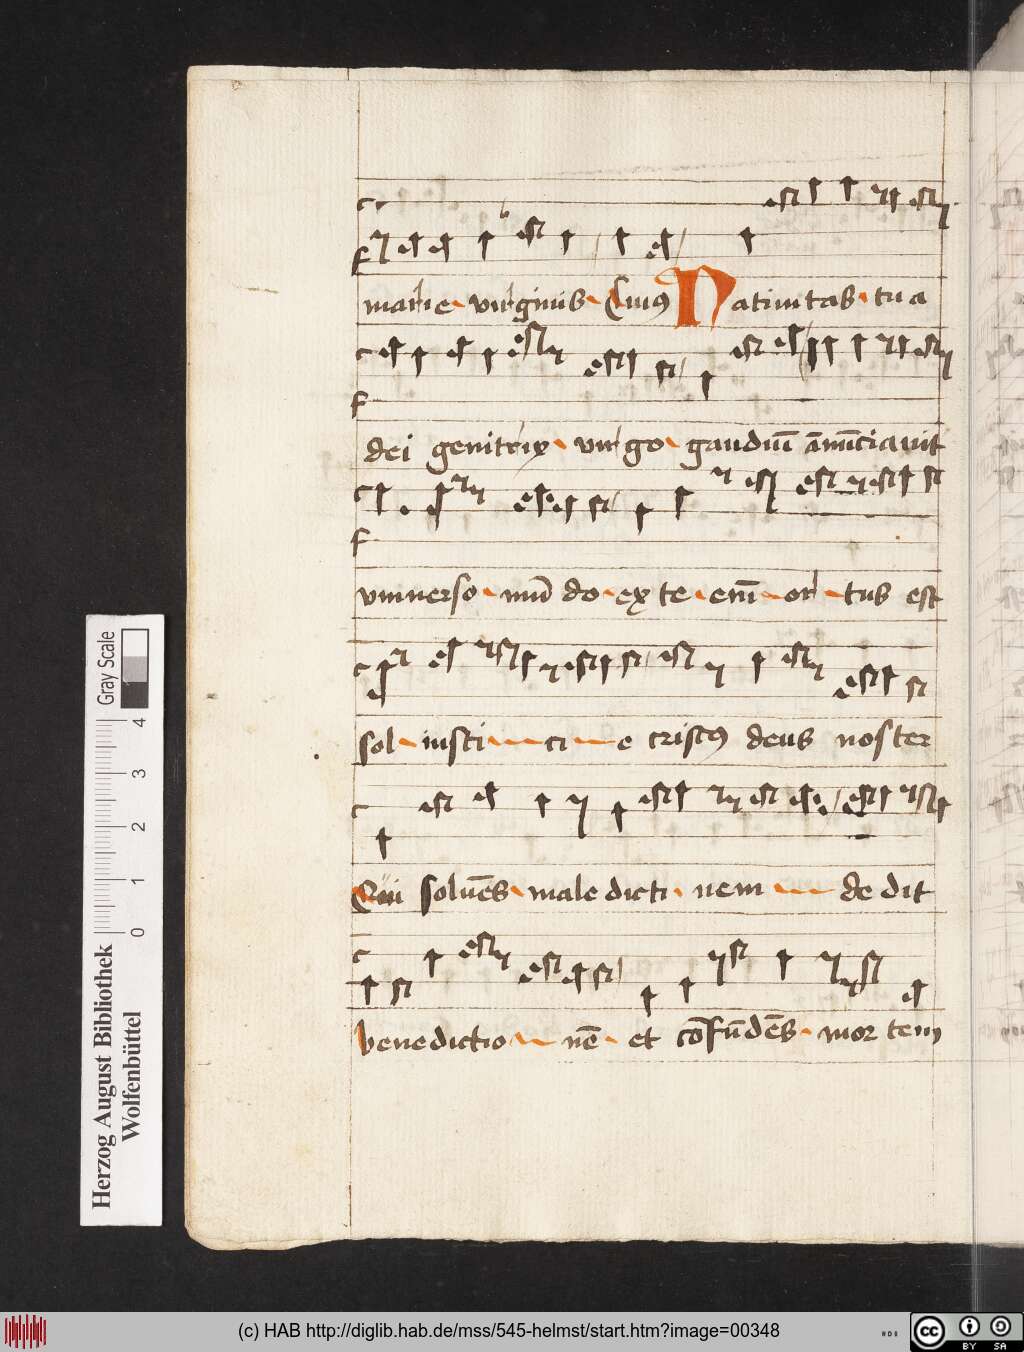 marie virginis Cuius Natiuitas tua
dei genitrix virgo gaudiū ānūciauit
vniuerso mūdo ex te eni͞m ortus est
sol iusticie cristus deus noster
Qui soluēs maledictinem dedit
benedictionē et cōfūdēs mortem
Gray Scale
0 1 2 3 4
Herzog August Bibliothek
Wolfenbüttel
(c) HAB http://diglib.hab.de/mss/545-helmst/start.htm?image=00348
cc BY SA